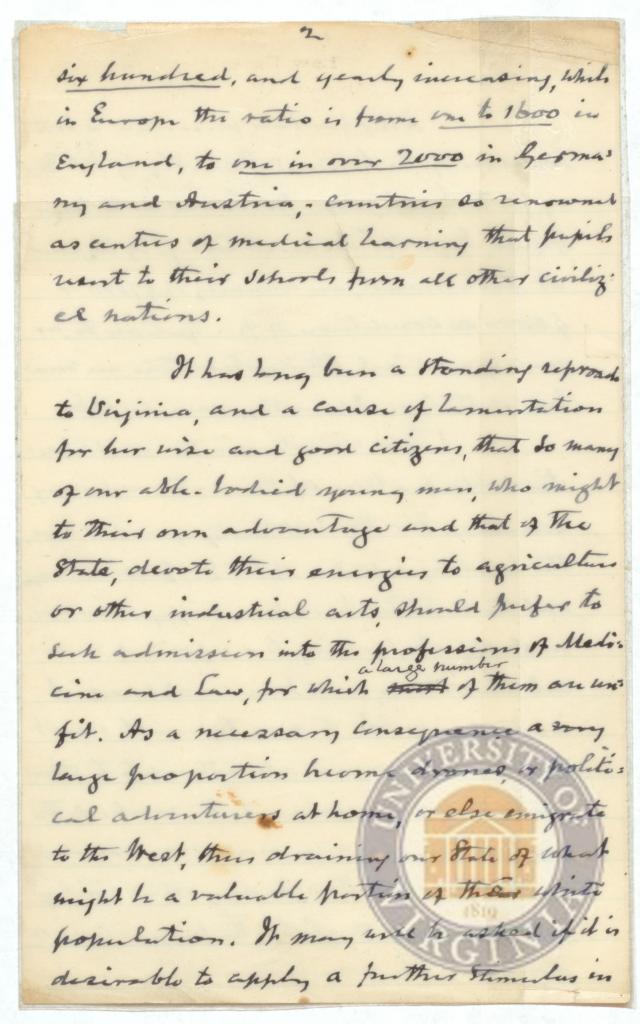 2
six hundred, and yearly increasing, while
in Europe the ratio is from one to 1600 in
England, to one in over 2000 in Germa-
ny and Austria, - countries so renowned
as centres of medical learning that pupils
resort to their schools from all other civiliz-
ed nations.
It has long been a standing reproach
to Virginia, and a cause of lamentation
for her wise and good citizens, that so many
of our able-bodied young men, who might
to their own advantage and that of the
State, devote their energies to agriculture
or other industrial arts, should prefer to
seek admission into the professions of Medi-
a large number
cine and Law, for which most of them are un-
fit. As a necessary consequence a very
large proportion become drones, or politi-
cal adventurers at home, or else emigrate
to the West, thus draining our State of what
might be a valuable portion of white
population. It may well be asked if it is
desirable to apply a further stimulus in
UNIVERSITY OF VIRGINIA
1819